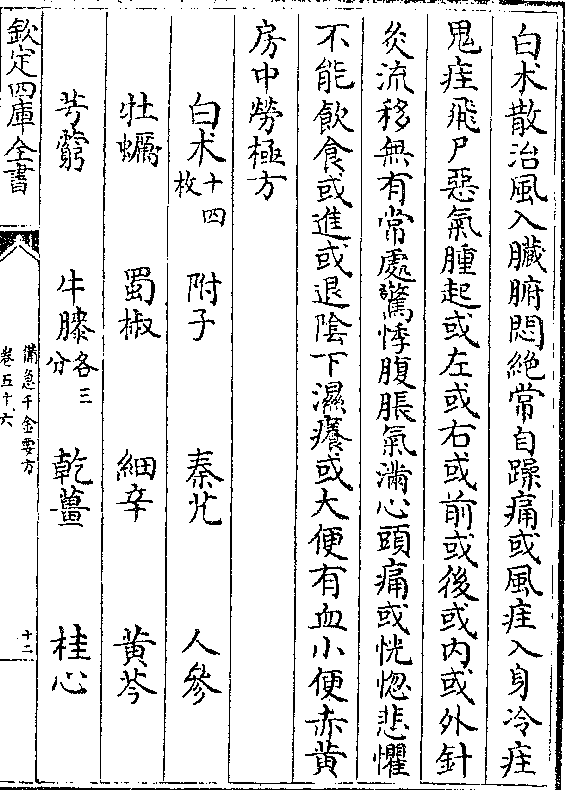 白朮散治風入臟腑悶絶常自躁痛或風疰入身冷疰
鬼疰飛尸惡氣腫起或左或右或前或後或内或外針
灸流移無有常處驚悸腹脹氣滿心頭痛或恍惚悲懼
不能飲食或進或退陰下濕癢或大便有血小便赤黄
房中勞極方
白朮十四枚 附子 秦艽 人參
牡蠣 蜀椒 細辛 黄芩
芎藭 牛膝各三分 乾薑 桂心
欽定四庫全書
備急千金要方
卷五十六
十二